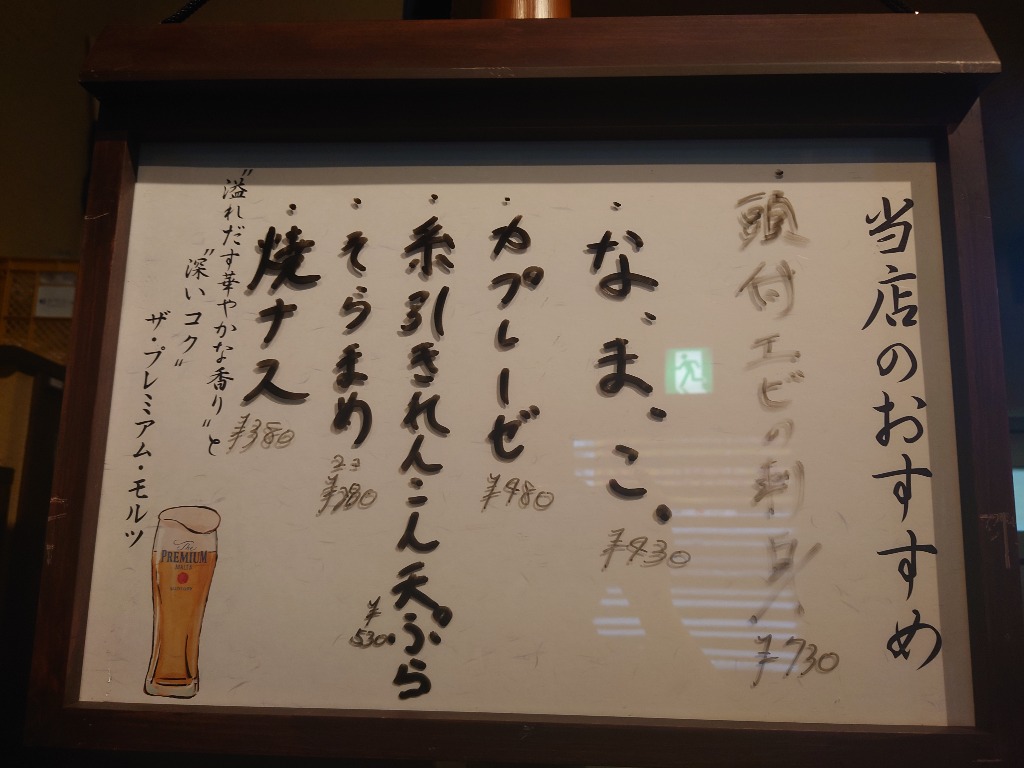 当店のおすすめ
・頭付エビの刺身
¥730
・なまこ
¥430
・カプレーゼ
¥480
・糸引きれんこん天ぷら
¥530
・そらまめ
¥380
・焼ナス
¥380
"溢れだす華やかな香り"と
"深いコク"
ザ・プレミアム・モルツ
The
PREMIUM
MALT'S